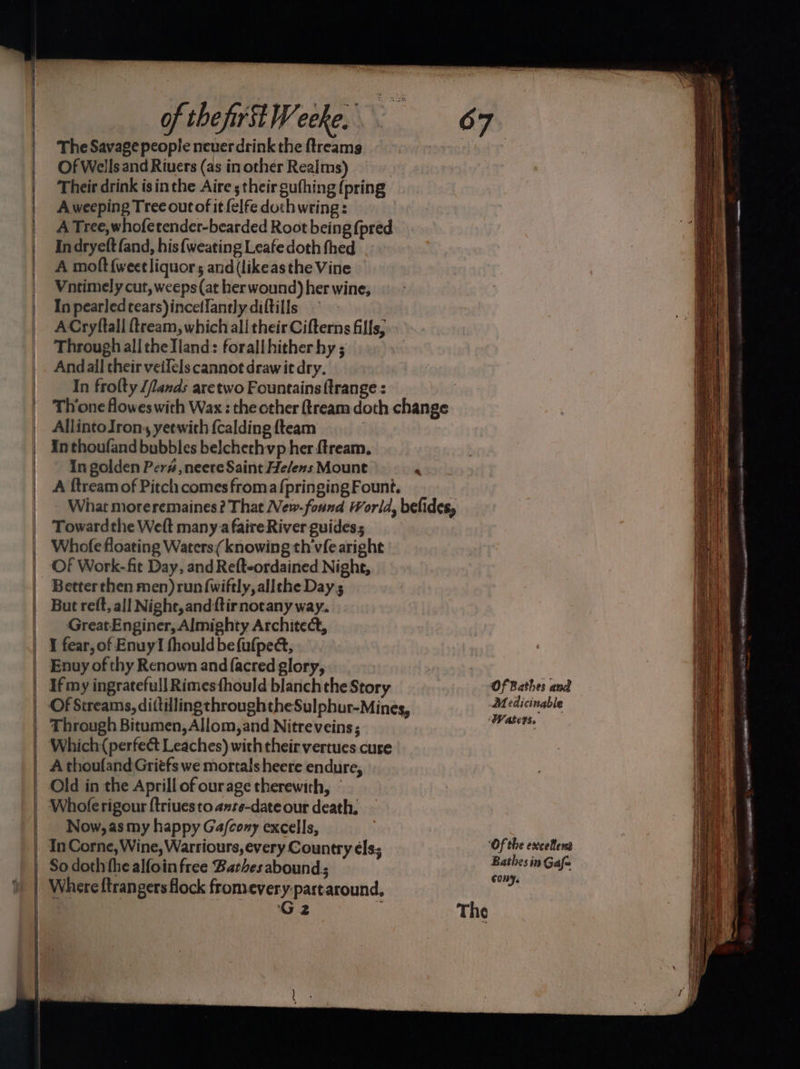 of the firſt Weeke. 67
The Savage people neuer drink the ſtreams
Of Wells and Riuers (as in other Realms)
Their drink is in the Aire; their guſhing ſpring
A weeping Tree out of it ſelfe doth wring:
A Tree, whoſe tender-bearded Root being ſpred
In dryeſt ſand, his ſweating Leafe doth ſhed
A moſt ſweet liquor; and (like as the Vine
Vntimely cut, weeps (at her wound) her wine,
In pearled tears) inceſſantly diſtills
A Cryſtall ſtream, which all their Ciſterns fills,
Through all the Iland: for all hither hy;
And all their veiſſels cannot draw it dry.
In froſty Iſlands are two Fountains ſtrange:
Th'one flowes with Wax: the other ſtream doth change
All into Iron, yet with ſcalding ſteam
In thouſand bubbles belcheth vp her ſtream.
In golden Perù, neere Saint Helens Mount
A ſtream of Pitch comes from a ſpringing Fount.
What more remaines? That New-found World, beſides,
Toward the Weſt many a faire River guides;
Whoſe floating Waters (knowing th'vſe aright
Of Work-fit Day, and Reſt-ordained Night,
Better then men) run ſwiftly, all the Day;
But reſt, all Night, and ſtir not any way.
Great Enginer, Almighty Architect,
I fear, of Enuy I ſhould be ſuſpect,
Enuy of thy Renown and ſacred glory,
If my ingratefull Rimes ſhould blanch the Story
Of Streams, diſtilling through the Sulphur-Mines,
Through Bitumen, Allom, and Nitre veins;
Which (perfect Leaches) with their vertues cure
A thouſand Griefs we mortals heere endure,
Old in the Aprill of our age therewith,
Whoſe rigour ſtriues to ante-date our death.
Now, as my happy Gaſcony excells,
In Corne, Wine, Warriours, every Country els;
So doth ſhe alſo in free Bathes abound;
Where ſtrangers flock from every part around.
Of Bathes and
Medicinable
Waters.
Of the excellent
Bathes in Gaſ-
cony.
G 2 The